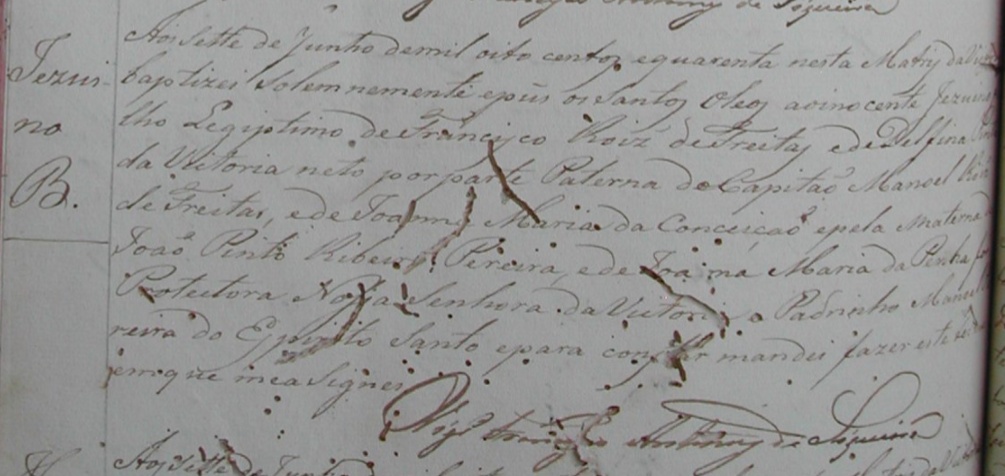 Antonio de Siqueira
Jezui-
no
B.
Aos sette de Junho de mil oito centos e quarenta nesta Matriz da
baptizei solemnemente e pûs os Santos Oleos ao inocente Jezuino
lho Legiptimo de Francisco Roiz de Freitas, e de Delfina
da Victoria neto por parte Paterna do Capitaõ Manoel
de Freitas, e de Joanna Maria da Conceiçaõ e pela materna
Joaõ Pinto Ribeiro Pereira, e de Joanna Maria da Penha
Protectora Nossa Senhora da Victoria e Padrinho Manoel
reira do Espirito Santo e para constar mandei fazer este
em que me aSignei
Antonio de Siqueira
Aos sette de Junho